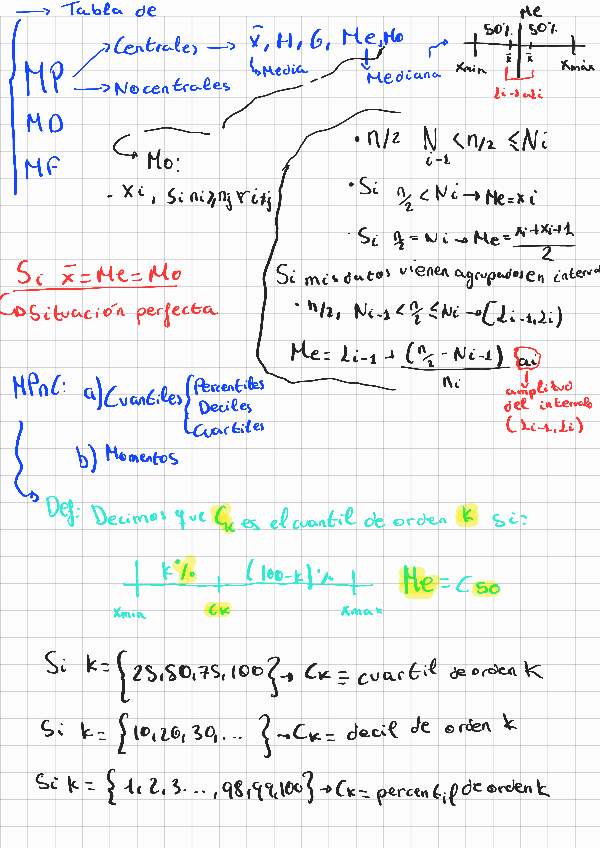 → Tabla de
MP → Centrales → x̄, H, G, Me, Mo
↳ Media
Mediana
→ No centrales
MD
MF
Me
50% 50%
xmin x̄ x̄ xmáx
Li-1 Li
Mo:
- xi, si ni ≥ nj ∀ i≠j
• n/2 N i-1 < n/2 ≤ Ni
• Si n/2 < Ni → Me = xi
• Si n/2 = Ni → Me = (xi + xi+1)/2
Si mis datos vienen agrupados en interval
• n/2, Ni-1 < n/2 ≤ Ni → [Li-1, Li)
Me = Li-1 + (n/2 - Ni-1)/ni ai
amplitud
del intervalo
(Li-1, Li)
Si x̄ = Me = Mo
↳ Situación perfecta
MPnC: a) Cuantiles { Percentiles
Deciles
Cuartiles
b) Momentos
Def: Decimos que Ck es el cuantil de orden k si:
k% (100-k)% Me = C50
xmin Ck xmax
Si k = {25, 50, 75, 100} → Ck ≡ cuartil de orden k
Si k = {10, 20, 30, ... } → Ck = decil de orden k
Si k = {1, 2, 3 ..., 98, 99, 100} → Ck = percentil de orden k